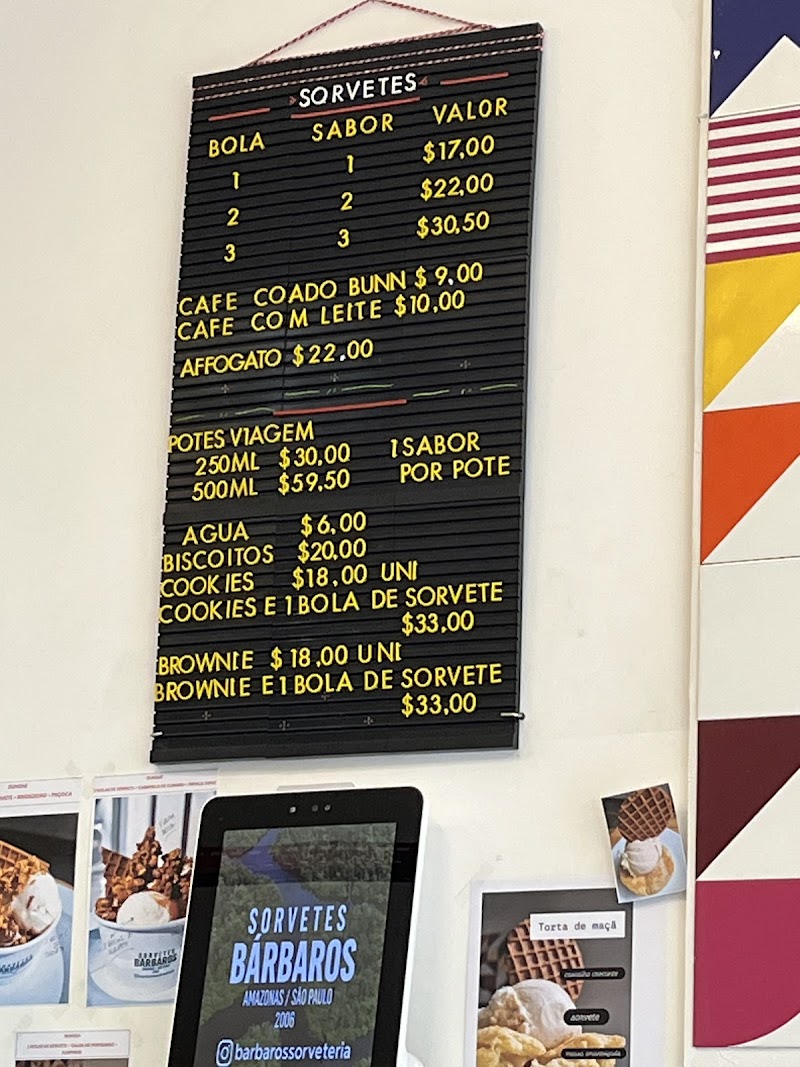 SORVETES
BOLA SABOR VALOR
1 1 $17,00
2 2 $22,00
3 3 $30,50
CAFE COADO BUNN $ 9,00
CAFE COM LEITE $10,00
AFFOGATO $22.00
POTES VIAGEM
250ML $30,00 1 SABOR
500ML $59,50 POR POTE
AGUA $6,00
BISCOITOS $20,00
COOKIES $18,00 UNI
COOKIES E 1 BOLA DE SORVETE
$33,00
BROWNIE $18,00 UNI
BROWNIE E 1 BOLA DE SORVETE
$33,00
SORVETES
BÁRBAROS
AMAZONAS / SÃO PAULO
2006
barbarossorveteria
SORVETES
BÁRBAROS
Torta de maçã
SORVETE